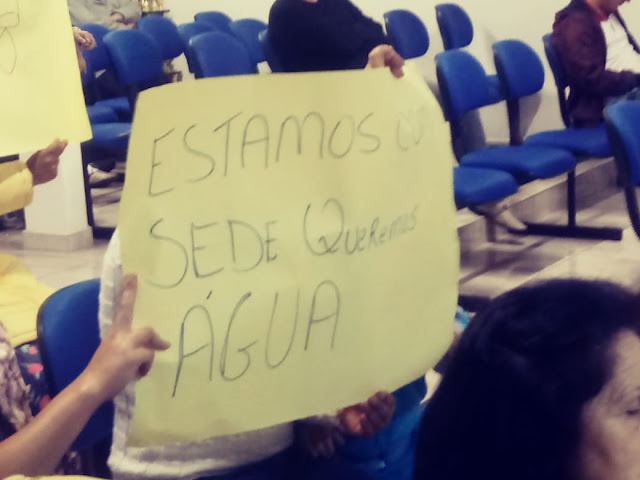 ESTAMOS
SEDE QUEREMOS
ÁGUA